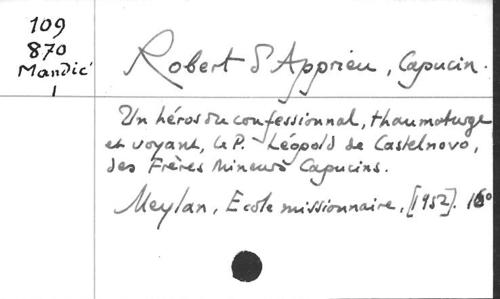 109
870
Mandić
1
Robert d'Apprieu, Capucin.
Un héros du confessionnal, thaumaturge
et voyant, le P. Léopold de Castelnovo,
des Frères Mineurs Capucins.
Meylan, Ecole missionnaire, [1952]. 16°